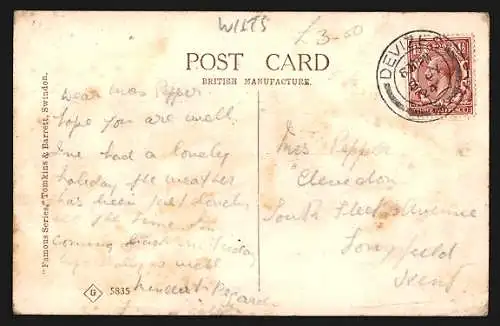 WILTS
£3-50
POST CARD
BRITISH MANUFACTURE.
DEVIZES
"Famous Series," Tomkins & Barrett, Swindon.
Dear Mrs Pepper
hope you are well
I've had a lovely
holiday the weather
has been just lovely
coming back on Tuesday
is well
kindest Regards
G 5835
Mrs Pepper
"Clevedon"
South Fleet Avenue
Longfield
Kent